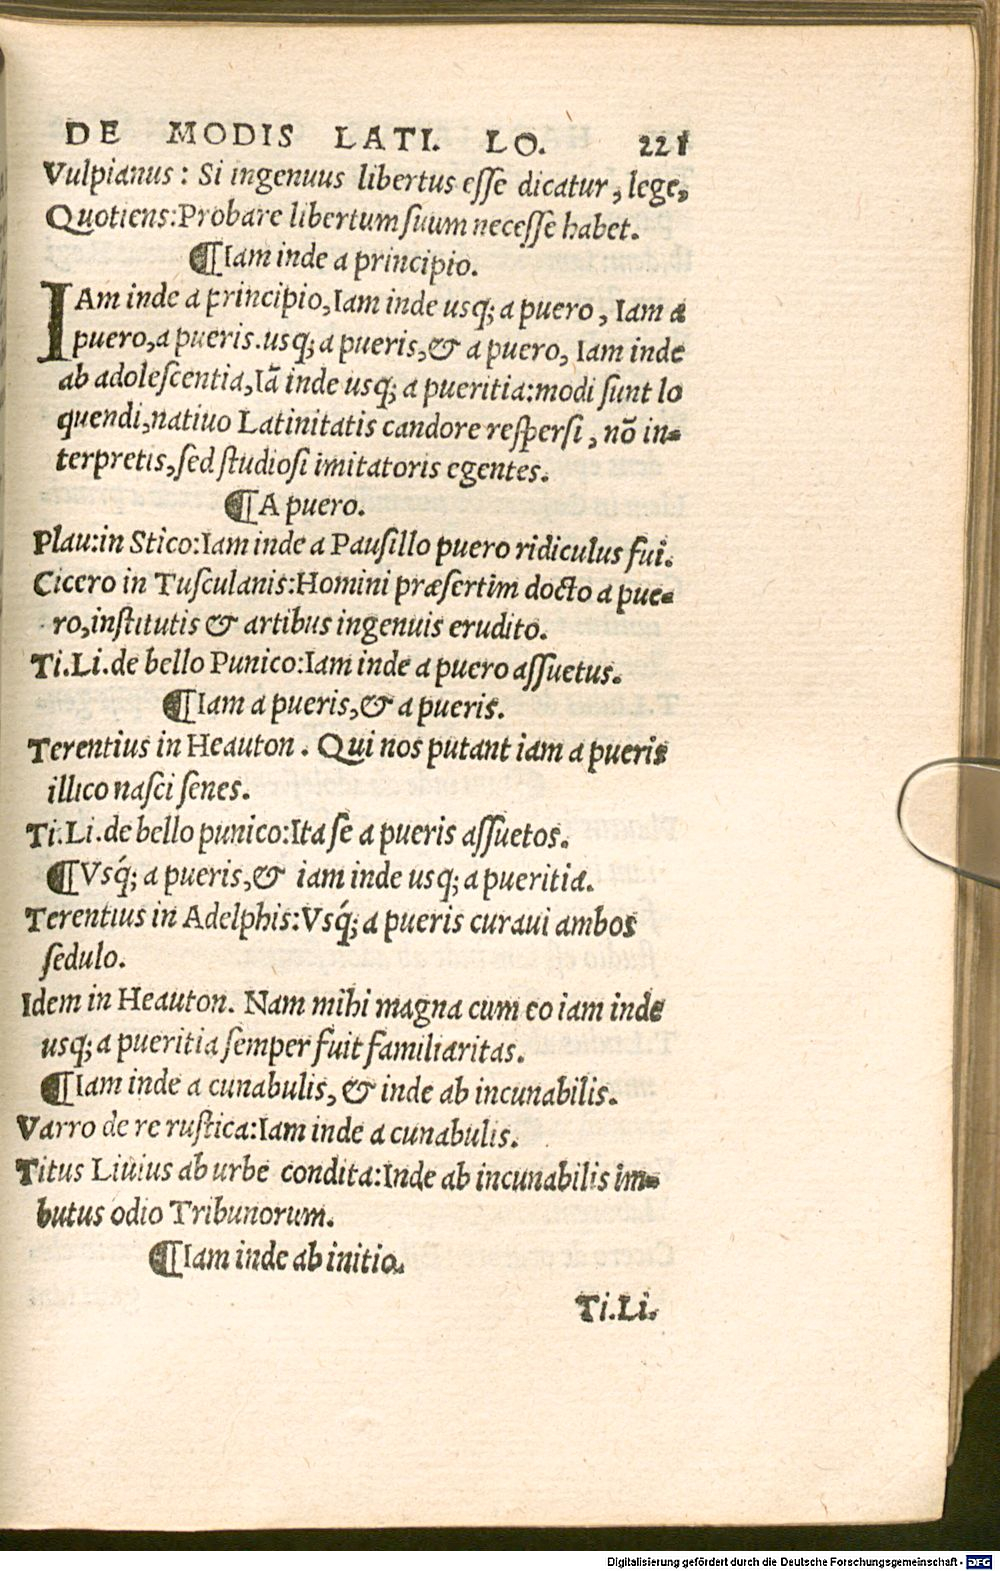 DE MODIS LATI. LO. 221
Vulpianus: Si ingenuus libertus eſſe dicatur, lege,
Quotiens: Probare libertum ſuum neceſſe habet.
¶Iam inde a principio.
IAm inde a principio, Iam inde usq; a puero, Iam a
puero, a pueris. usq; a pueris, & a puero, Iam inde
ab adoleſcentia, Iā inde usq; a pueritia: modi ſunt lo
quendi, natiuo Latinitatis candore reſperſi, nō in-
terpretis, ſed ſtudioſi imitatoris egentes.
¶A puero.
Plau: in Stico: Iam inde a Pauſillo puero ridiculus fui.
Cicero in Tuſculanis: Homini præſertim docto a pue-
ro, inſtitutis & artibus ingenuis erudito.
Ti. Li. de bello Punico: Iam inde a puero aſſuetus.
¶Iam a pueris, & a pueris.
Terentius in Heauton. Qui nos putant iam a pueris
illico naſci ſenes.
Ti. Li. de bello punico: Ita ſe a pueris aſſuetos.
¶Vsq́; a pueris, & iam inde usq; a pueritia.
Terentius in Adelphis: Vsq́; a pueris curaui ambos
ſedulo.
Idem in Heauton. Nam mihi magna cum eo iam inde
usq; a pueritia ſemper fuit familiaritas.
¶Iam inde a cunabulis, & inde ab incunabilis.
Varro de re ruſtica: Iam inde a cunabulis.
Titus Liuius ab urbe condita: Inde ab incunabilis im-
butus odio Tribunorum.
¶Iam inde ab initio.
Ti. Li.
Digitalisierung gefördert durch die Deutsche Forschungsgemeinschaft - DFG